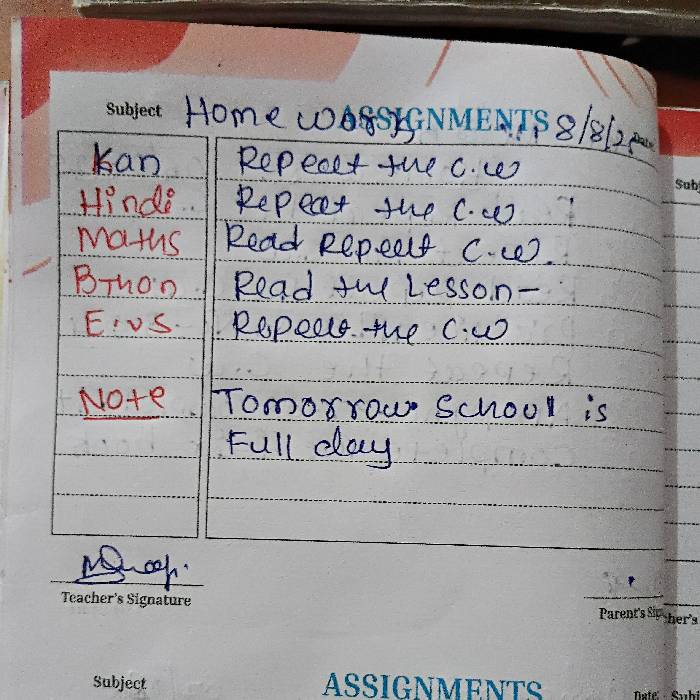 Subject Home work ASSIGNMENTS 8/8/2
Kan Repeat the C.W
Hindi Repeat the C.W
Maths Read Repeat C.W.
Read the Lesson-
E.V.S. Repeat the C.W
Note Tomorrow School is
Full day
Teacher's Signature
Parent's
Subject ASSIGNMENTS Date